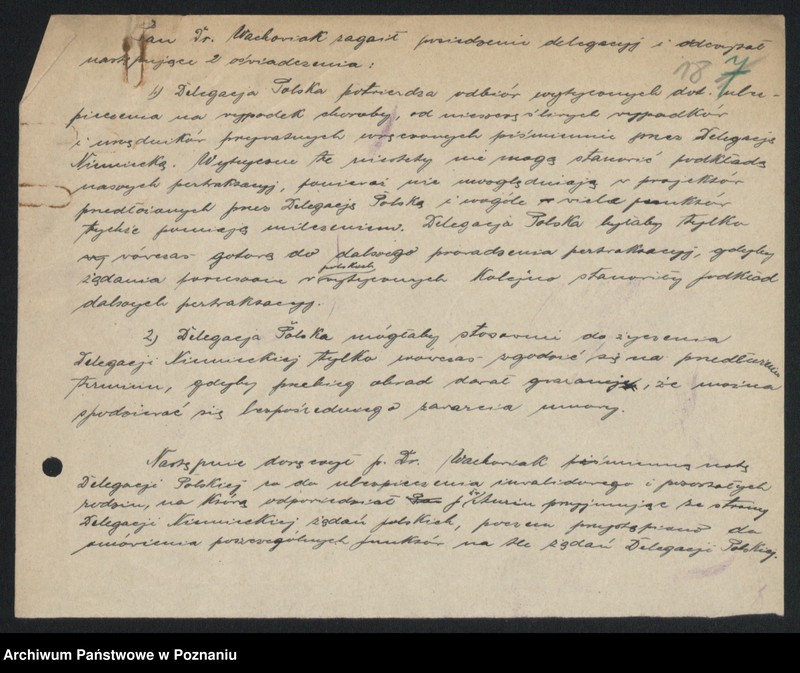 Pan Dr. Wachowiak zagaił posiedzenie delegacyj i odczytał
następujące 2 oświadczenia:
18 7
1) Delegacja Polska potwierdza odbiór wytycznych dot. ubez-
pieczenia na wypadek choroby, od nieszczęśliwych wypadków
i urzędników prywatnych wręczonych piśmiennie przez Delegację
Niemiecką. Wytyczne te niestety nie mogą stanowić podkładu
naszych pertraktacyj, ponieważ nie uwzględniają projektów
przedłożonych przez Delegację Polską i wogóle wiele punktów
tychże pomijają milczeniem. Delegacja Polska byłaby tylko
wówczas gotową do dalszego prowadzenia pertraktacyj, gdyby
żądania poruszone w polskich wytycznych kolejno stanowiły podkład
dalszych pertraktacyj.
2) Delegacja Polska mógłaby stosownie do życzenia
Delegacji Niemieckiej tylko wówczas zgodzić się na przedłużenie
terminu, gdyby przebieg obrad dawał gwarancję, że można
spodziewać się bezpośredniego zawarcia umowy.
Następnie doręczył p. Dr. Wachowiak piśmienną notę
Delegacji Polskiej co do ubezpieczenia inwalidowego i pozostałych
rodzin, na którą odpowiedział p. przyjmując ze strony
Delegacji Niemieckiej żądań polskich, poczem przystąpiono do
omówienia poszczególnych punktów na tle żądań Delegacji Polskiej.
Archiwum Państwowe w Poznaniu